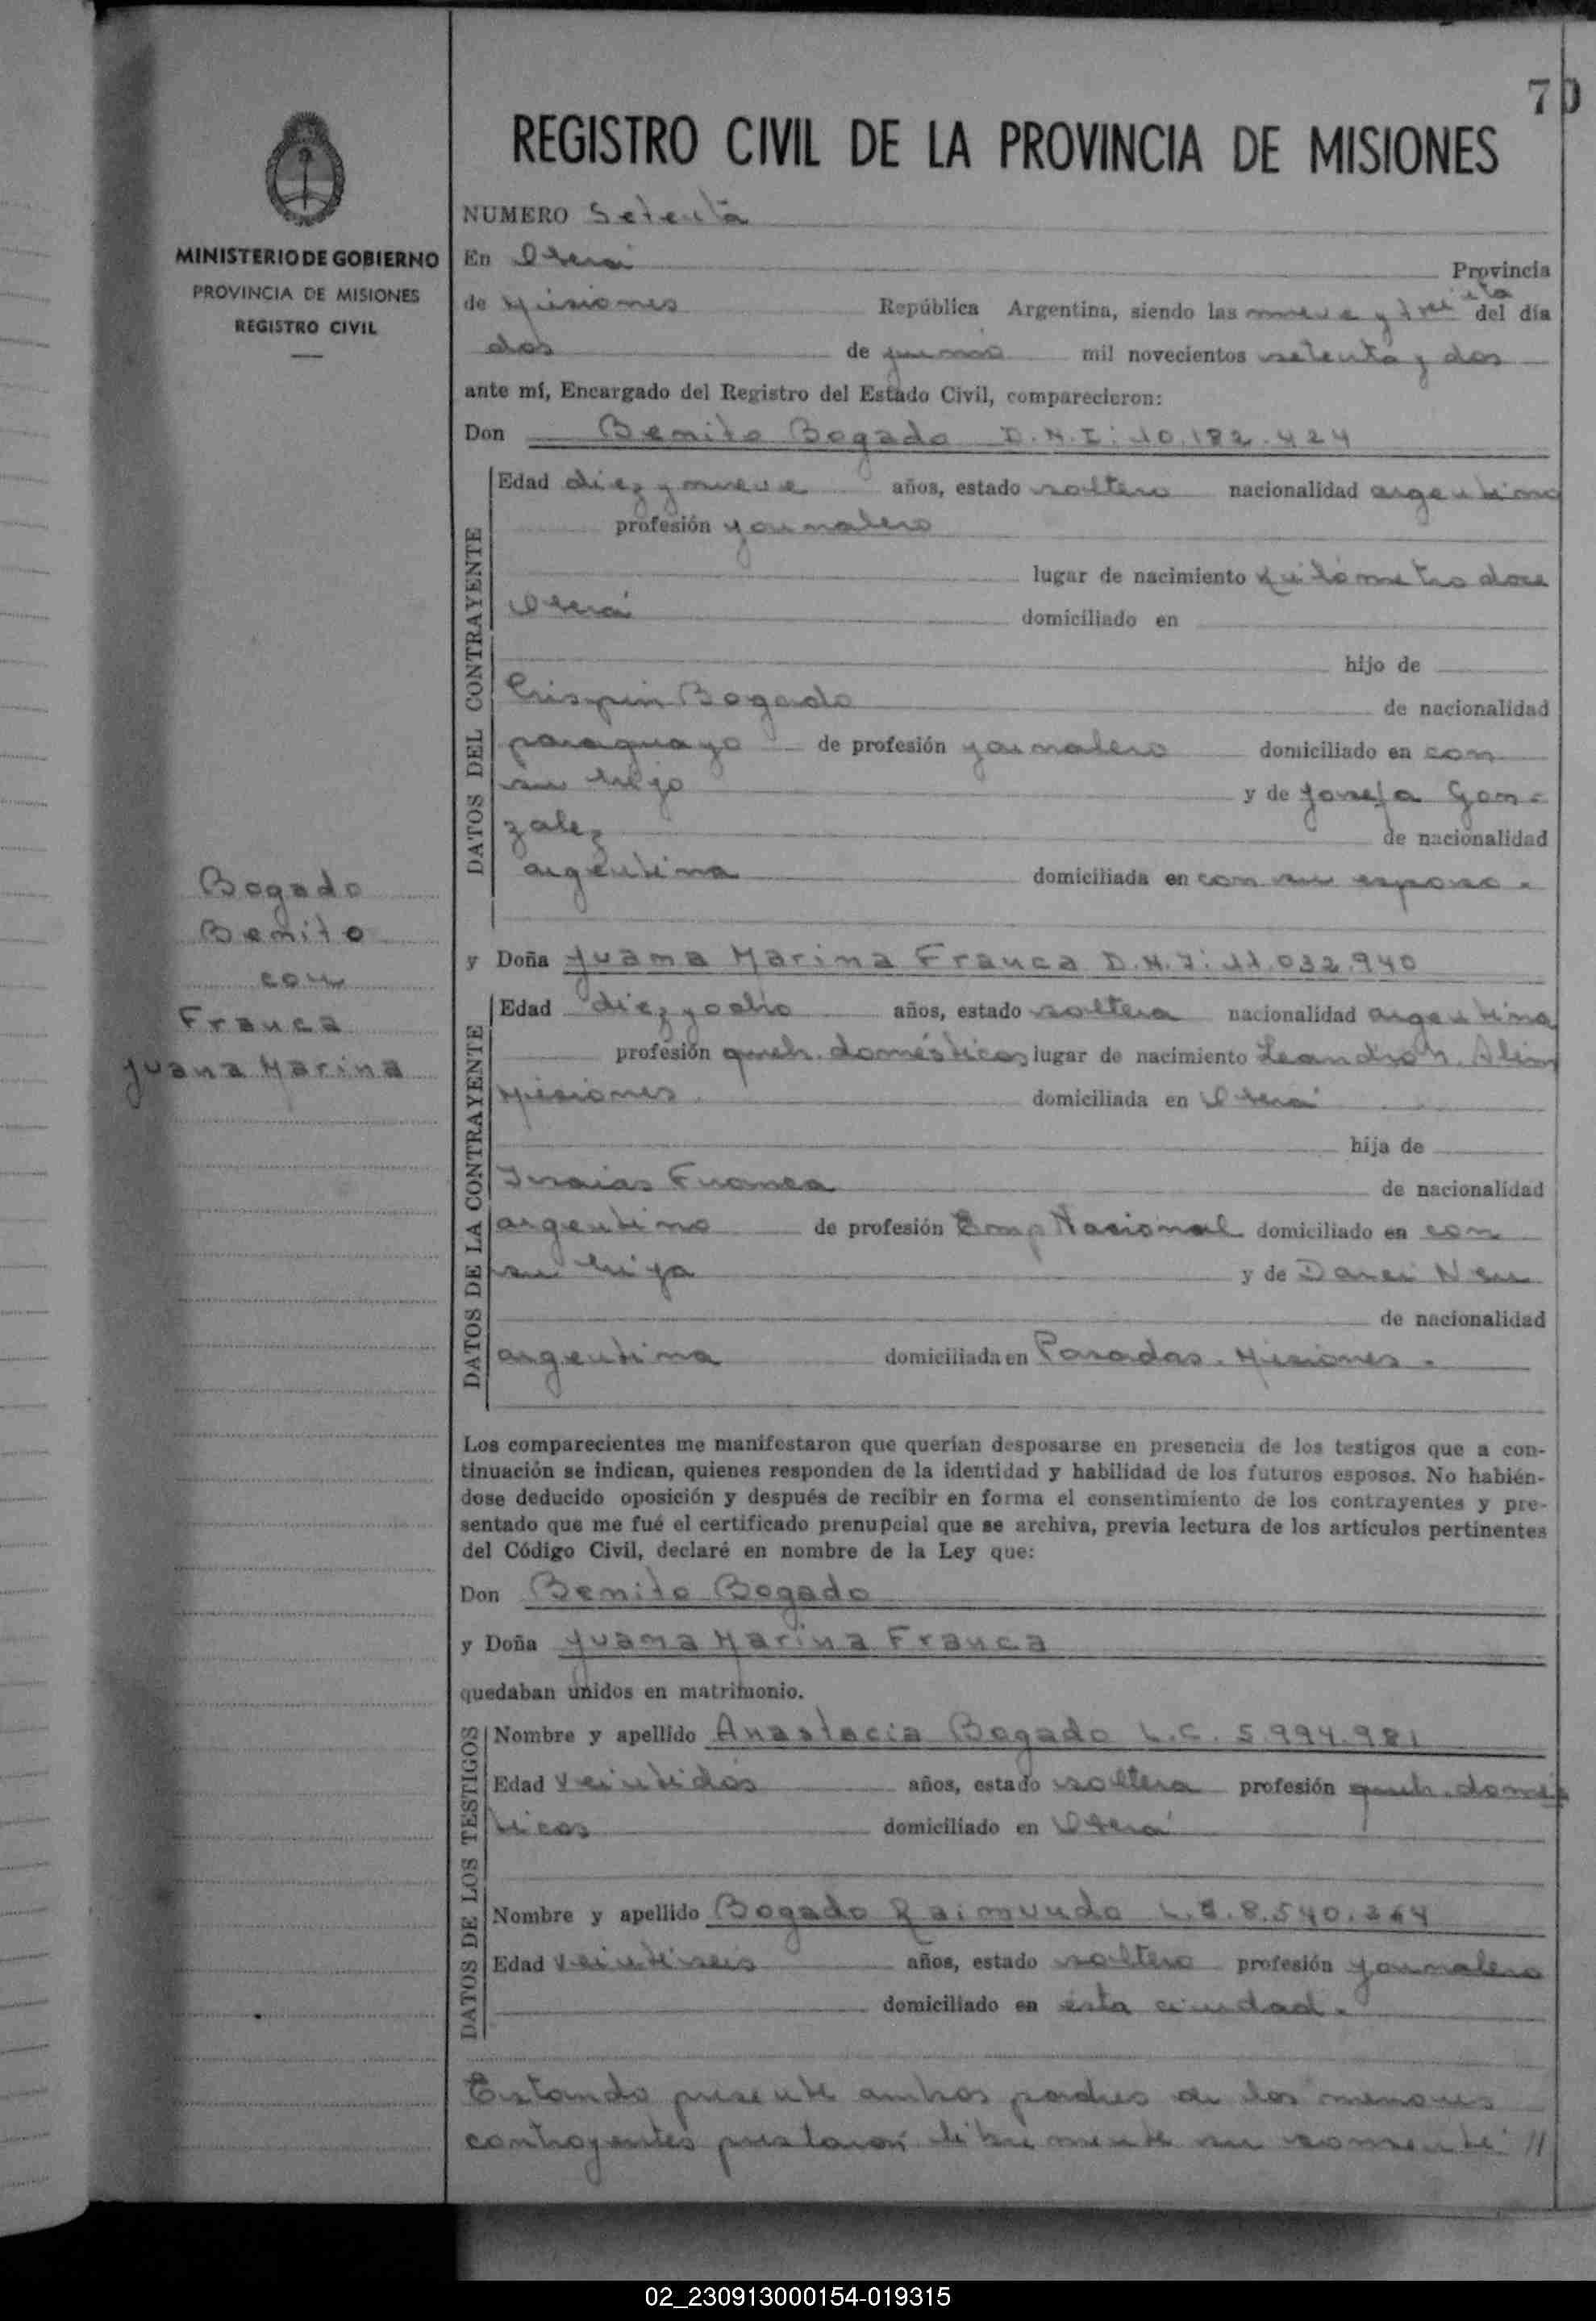 70
REGISTRO CIVIL DE LA PROVINCIA DE MISIONES
MINISTERIO DE GOBIERNO
PROVINCIA DE MISIONES
REGISTRO CIVIL
NUMERO Setenta
En Oberá Provincia
de Misiones República Argentina, siendo las nueve y treinta del día
dos de junio mil novecientos setenta y dos
ante mí, Encargado del Registro del Estado Civil, comparecieron:
Don Benito Bogado D.N.I: 10.182.424
DATOS DEL CONTRAYENTE
Edad diez y nueve años, estado soltero nacionalidad argentino
profesión jornalero
lugar de nacimiento Kilómetro doce
Oberá domiciliado en
hijo de
Crispin Bogado de nacionalidad
paraguayo de profesión jornalero domiciliado en con
su hijo y de Josefa Gon-
zalez de nacionalidad
argentina domiciliada en con su esposo.
Bogado
Benito
con
Franca
Juana Marina
y Doña Juana Marina Franca D.N.I: 11.032.940
DATOS DE LA CONTRAYENTE
Edad diez y ocho años, estado soltera nacionalidad argentina
profesión queh. domésticos lugar de nacimiento Leandro N. Alem
Misiones domiciliada en Oberá
hija de
Isaias Franca de nacionalidad
argentino de profesión Emp Nacional domiciliado en con
su hija y de Darci
de nacionalidad
argentina domiciliada en Posadas. Misiones.
Los comparecientes me manifestaron que querían desposarse en presencia de los testigos que a con-
tinuación se indican, quienes responden de la identidad y habilidad de los futuros esposos. No habién-
dose deducido oposición y después de recibir en forma el consentimiento de los contrayentes y pre-
sentado que me fué el certificado prenupcial que se archiva, previa lectura de los artículos pertinentes
del Código Civil, declaré en nombre de la Ley que:
Don Benito Bogado
y Doña Juana Marina Franca
quedaban unidos en matrimonio.
DATOS DE LOS TESTIGOS
Nombre y apellido Anastacia Bogado L.C. 5.994.981
Edad veintidós años, estado soltera profesión queh. domés
ticos domiciliado en Oberá
Nombre y apellido Bogado Raimundo L.E. 8.540.264
Edad veintiseis años, estado soltero profesión jornalero
domiciliado en ésta ciudad.
Estando presente ambos padres de los menores
contrayentes prestaron libremente su consenti //
02_230913000154-019315